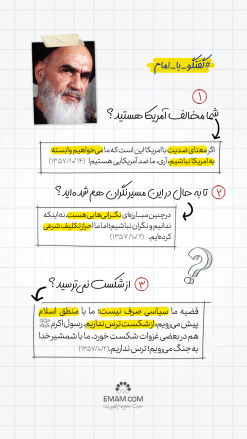 #گفتگو_با_امام
۱
شما مخالف آمریکا هستید؟
اگر معنای ضدیت با آمریکا این است که ما می‌خواهیم وابسته
به امریکا نباشیم، آری، ما ضد آمریکایی هستیم! (۱۴ /۱۰/ ۱۳۵۷)
۲ تا به حال در این مسیر نگران هم شده‌اید؟
در چنین مبارزه‌ای نگرانی‌هایی هست. نه اینکه
ندانیم و نگران نباشیم؛ اما ما احراز تکلیف شرعی
کرده‌ایم. (۲ /۱۰/ ۱۳۵۷)
۳ از شکست نمی‌ترسید؟
قضیه ما سیاسی صرف نیست؛ ما با منطق اسلام
پیش می‌رویم، از شکست ترس نداریم. رسول اکرم ﷺ
هم در بعضی غزوات شکست خورد. ما با شمشیر خدا
به جنگ می‌رویم؛ ترس نداریم.
EMAM.COM